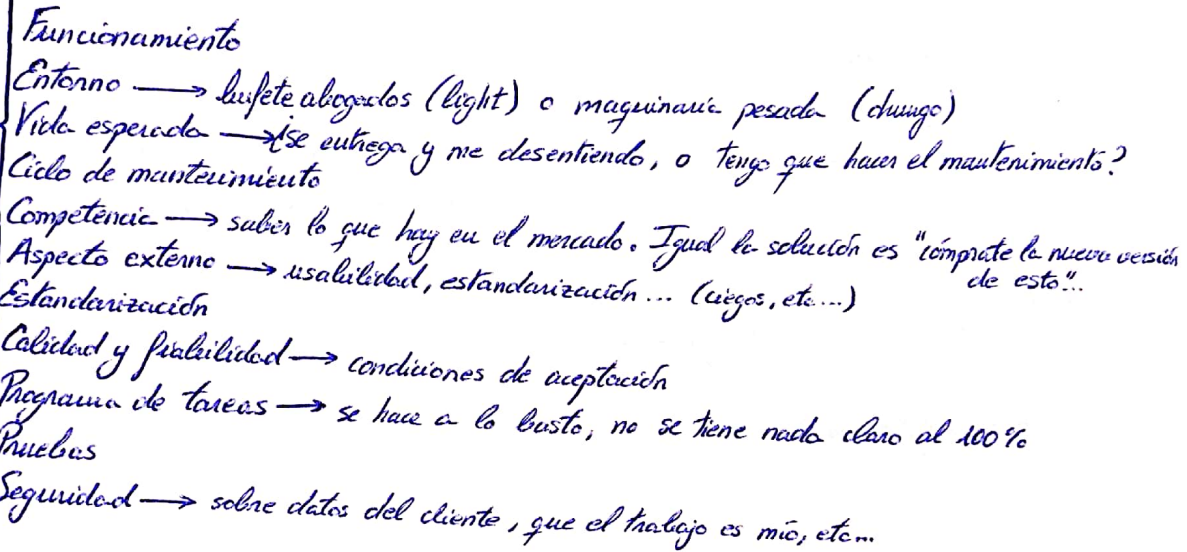 Funcionamiento
Entorno → bufete abogados (light) o maquinaria pesada (chungo)
Vida esperada → ¿se entrega y me desentiendo, o tengo que hacer el mantenimiento?
Ciclo de mantenimiento
Competencia → saber lo que hay en el mercado. Igual la solución es "cómprate la nueva versión
de esto"...
Aspecto externo → usabilidad, estandarización... (ciegos, etc...)
Estandarización
Calidad y fiabilidad → condiciones de aceptación
Programa de tareas → se hace a lo basto, no se tiene nada claro al 100%
Pruebas
Seguridad → sobre datos del cliente, que el trabajo es mío, etc...